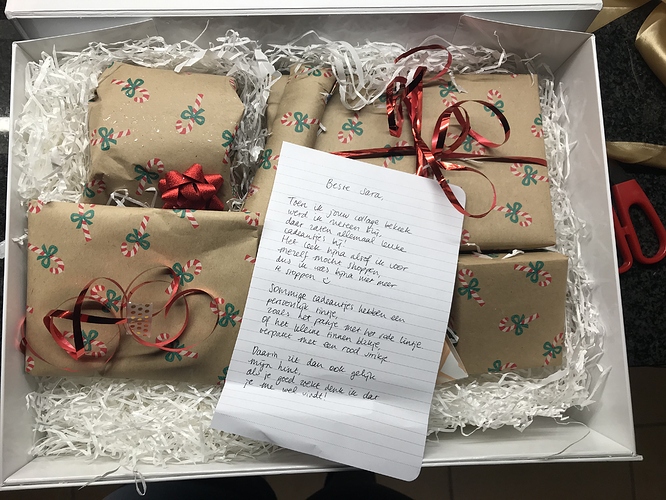 Beste Sara,
Toen ik jouw collage bekeek
werd ik meteen blij,
daar zaten allemaal leuke
cadeautjes bij!
Het leek bijna alsof ik voor
mezelf mocht shoppen,
dus ik was bijna niet meer
te stoppen
Sommige cadeautjes hebben een
persoonlijk tintje,
zoals het pakje met het rode lintje
Of het kleine binnen
verpakt met een rood strikje
Daarin zit dan ook gelijk
mijn hint,
als je goed zoekt denk ik dat
je me wel vindt!